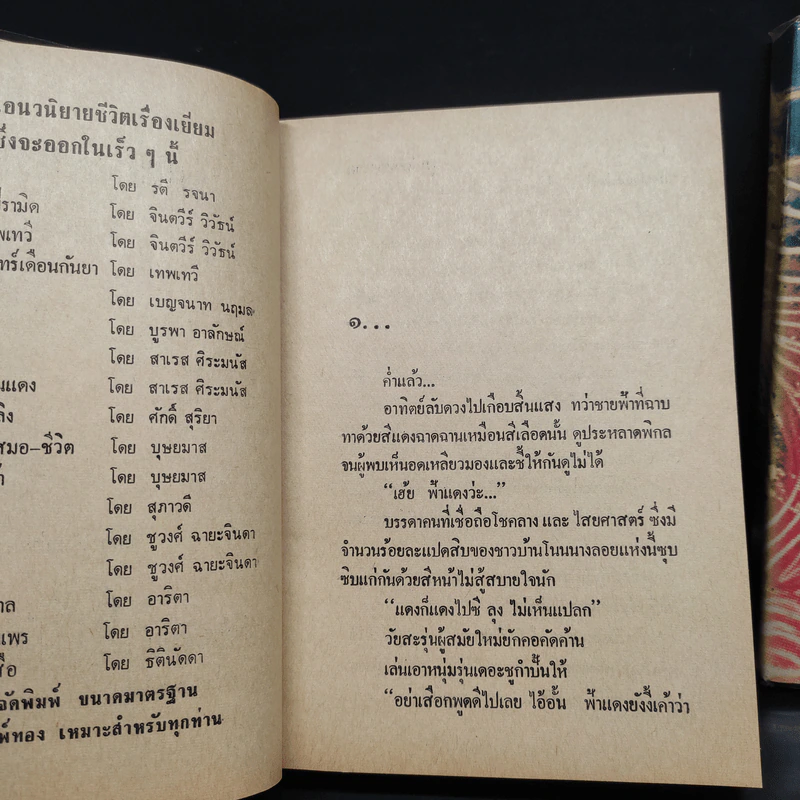 นวนิยายชีวิตเรื่องเยี่ยม
ซึ่งจะออกในเร็ว ๆ นี้
โดย รตี รจนา
โดย จินตวีร์ วิวัธน์
โดย จินตวีร์ วิวัธน์
เดือนกันยา โดย เทพเทวี
โดย เบญจนาท นฤมล
โดย บูรพา อาลักษณ์
โดย สาเรส ศิระมนัส
โดย สาเรส ศิระมนัส
โดย ศักดิ์ สุริยา
โดย บุษยมาส
โดย บุษยมาส
โดย สุภาวดี
โดย ชูวงศ์ ฉายะจินดา
โดย ชูวงศ์ ฉายะจินดา
โดย อาริตา
โดย อาริตา
โดย ธิตินัดดา
จัดพิมพ์ ขนาดมาตรฐาน
เหมาะสำหรับทุกท่าน
๑...
ค่ำแล้ว...
อาทิตย์ลับดวงไปเกือบสิ้นแสง ทว่าชายฟ้าที่ฉาบ
ทาด้วยสีแดงฉาดฉานเหมือนสีเลือดนั้น ดูประหลาดพิกล
จนผู้พบเห็นอดเหลียวมองและชี้ให้กันดูไม่ได้
“เฮ้ย ฟ้าแดงว่ะ...”
บรรดาคนที่เชื่อถือโชคลาง และ ไสยศาสตร์ ซึ่งมี
จำนวนร้อยละแปดสิบของชาวบ้านโนนนางลอยแห่งนี้ซุบ
ซิบแก่กันด้วยสีหน้าไม่สู้สบายใจนัก
“แดงก็แดงไปซี ลุง ไม่เห็นแปลก”
วัยสะรุ่นผู้สมัยใหม่ยักคอคัดค้าน
เล่นเอาหนุ่มรุ่นเดอะชูกำปั้นให้
“อย่าเสือกพูดดีไปเลย ไอ้อั้น ฟ้าแดงยังงี้เค้าว่า